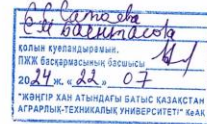 қолын куәландырамын.
ПЖЖ басқармасының басшысы
2024 ж. «22» 07
"ЖӘҢГІР ХАН АТЫНДАҒЫ БАТЫС ҚАЗАҚСТАН
АГРАРЛЫҚ-ТЕХНИКАЛЫҚ УНИВЕРСИТЕТІ" КеАҚ